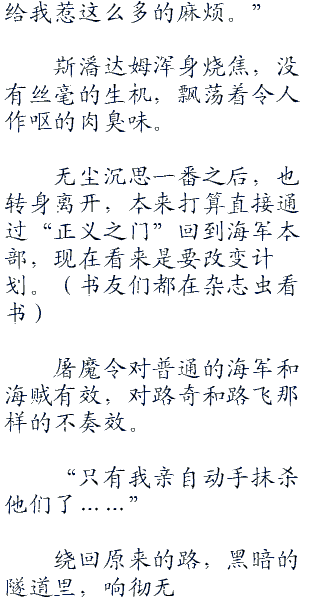 给我惹这么多的麻烦。”
斯潘达姆浑身烧焦，没
有丝毫的生机，飘荡着令人
作呕的肉臭味。
无尘沉思一番之后，也
转身离开，本来打算直接通
过“正义之门”回到海军本
部，现在看来是要改变计
划。（书友们都在杂志虫看
书）
屠魔令对普通的海军和
海贼有效，对路奇和路飞那
样的不奏效。
“只有我亲自动手抹杀
他们了……”
绕回原来的路，黑暗的
隧道里，响彻无